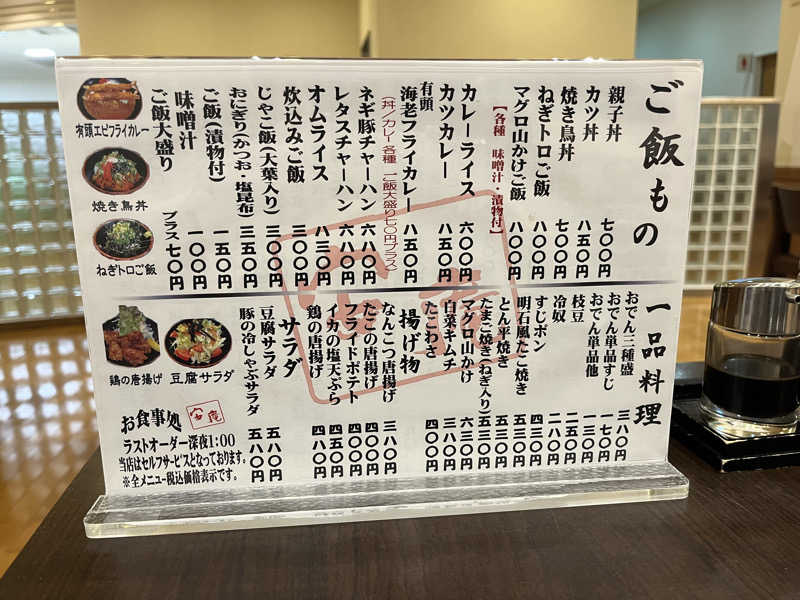 ご飯もの
親子丼 七〇〇円
カツ丼 八五〇円
焼き鳥丼 七〇〇円
ねぎトロご飯 八〇〇円
マグロ山かけご飯 八〇〇円
【各種 味噌汁・漬物付】
カレーライス 六〇〇円
カツカレー 八五〇円
有頭
海老フライカレー 八五〇円
（丼／カレー各種 ご飯大盛り七〇円プラス）
ネギ豚チャーハン 六八〇円
レタスチャーハン 六八〇円
オムライス 八三〇円
炊込みご飯 三〇〇円
じゃこ飯（大葉入り） 三〇〇円
おにぎり（かつお・塩昆布） 三五〇円
ご飯（漬物付） 一五〇円
味噌汁 一〇〇円
ご飯大盛り プラス七〇円
有頭エビフライカレー
焼き鳥丼
ねぎトロご飯
一品料理
おでん三種盛 三八〇円
おでん単品すじ 一七〇円
おでん単品他 一三〇円
枝豆 二五〇円
冷奴 二八〇円
すじポン 四三〇円
明石風たこ焼き 五三〇円
とん平焼き 五三〇円
たまご焼き（ねぎ入り） 五三〇円
マグロ山かけ 六三〇円
白菜キムチ 三八〇円
たこわさ 四〇〇円
揚げ物
なんこつ唐揚げ 三八〇円
たこの唐揚げ 四〇〇円
フライドポテト 四〇〇円
イカの塩天ぷら 四五〇円
鶏の唐揚げ 四八〇円
サラダ
豆腐サラダ 五八〇円
豚の冷しゃぶサラダ 五八〇円
鶏の唐揚げ
豆腐サラダ
お食事処
ラストオーダー深夜1:00
当店はセルフサービスとなっております。
※全メニュー税込価格表示です。